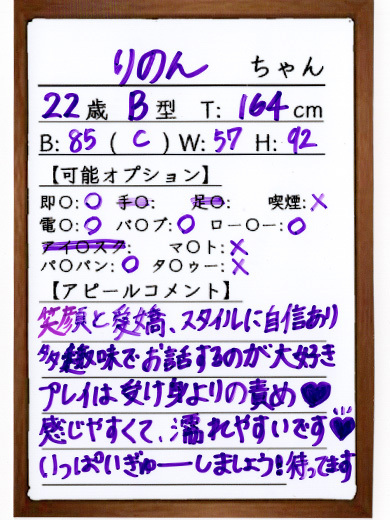 りのん ちゃん
22歳 B型 T: 164cm
B: 85 ( C ) W: 57 H: 92
【可能オプション】
即〇: 〇 手〇: 足〇: 喫煙: ×
電〇: 〇 バ〇ブ: 〇 ロー〇ー: 〇
アイ〇スク: マ〇ト: ×
パ〇パン: 〇 タ〇ゥー: ×
【アピールコメント】
笑顔と愛嬌、スタイルに自信あり
多趣味でお話するのが大好き
プレイは受け身よりの責め♥
感じやすくて、濡れやすいです♥
いっぱいぎゅーしましょう!待ってます